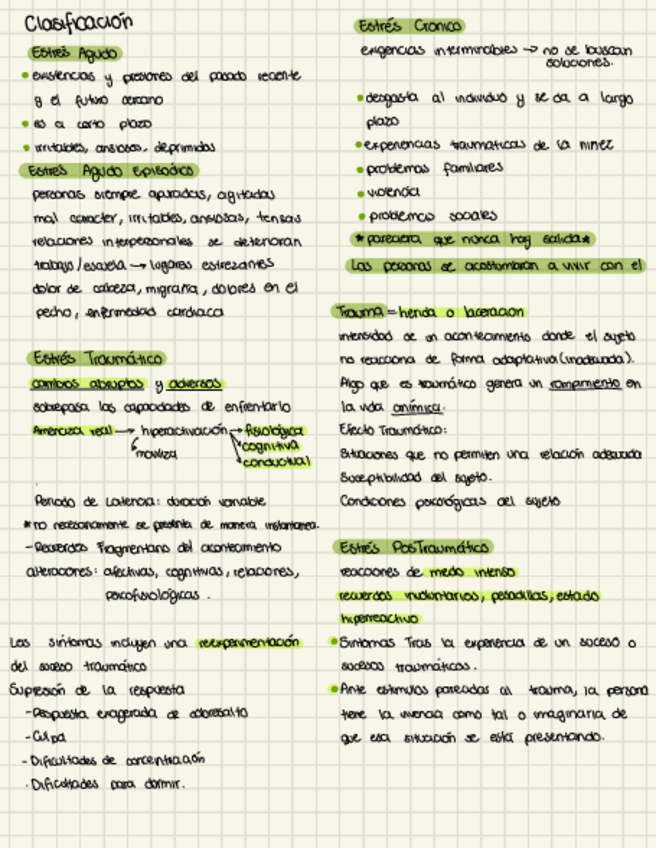 Clasificación
Estrés Agudo
• existencias y presiones del pasado reciente
y el futuro cercano
• es a corto plazo
• irritables, ansiosos, deprimidos
Estrés Agudo Episódico
personas siempre apuradas, agitadas
mal caracter, irritables, ansiosas, tensas
relaciones interpersonales se deterioran
trabajo/escuela → lugares estrezantes
dolor de cabeza, migraña, dolores en el
pecho, enfermedad cardiaca
Estrés Traumático
cambios abruptos y adversos
sobrepasa las capacidades de enfrentarlo
Amenaza real → hiperactivación → fisiológica
moviliza
cognitiva
conductual
Periodo de Latencia: duración variable
*no necesariamente se presenta de manera instantanea.
- Recuerdos Fragmentarios del acontecimiento
alteraciones: afectivas, cognitivas, relaciones,
psicofisiológicas.
Los síntomas incluyen una reexperimentación
del suceso traumático
Supresión de la respuesta
- Respuesta exagerada de sobresalto
- Culpa
- Dificultades de concentración
- Dificultades para dormir.
Estrés Cronico
exigencias interminables → no se buscan
soluciones.
• desgasta al individuo y se da a largo
plazo
• experiencias traumaticas de la niñez
• problemas familiares
• violencia
• problemas sociales
*pareciera que nunca hay salida*
Las personas se acostumbran a vivir con el
Trauma = herida o laceración
intensidad de un acontecimiento donde el sujeto
no reacciona de forma adaptativa (inadecuada).
Algo que es traumático genera un rompimiento en
la vida anímica.
Efecto Traumático:
Situaciones que no permiten una relación adecuada
Suceptibilidad del sujeto.
Condiciones psicológicas del sujeto
Estrés PosTraumático
reacciones de miedo intenso
recuerdos involuntarios, pesadillas, estado
hiperreactivo
• Sintomas Tras la experiencia de un suceso o
sucesos traumáticos.
• Ante estimulos pareados al trauma, la persona
tiene la vivencia como tal o imaginaria de
que esa situación se está presentando.